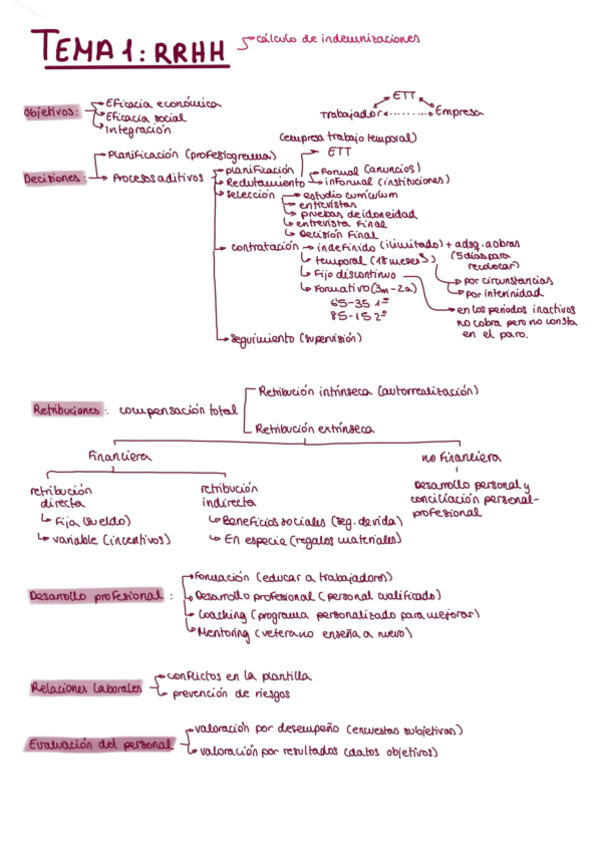 TEMA 1: RRHH
cálculo de indemnizaciones
Objetivos:
Eficacia económica
Eficacia social
Integración
ETT
Trabajador
Empresa
(empresa trabajo temporal)
ETT
Decisiones:
Planificación (profesiograma)
Procesos aditivos
planificación
Reclutamiento
Formal (anuncios)
informal (instituciones)
selección
estudio currículum
entrevistas
pruebas de idoneidad
entrevista Final
Decisión Final
contratación
indefinido (ilimitado) + adsq. a obras
(5 días para recolocar)
temporal (18 meses)
por circunstancias
por interinidad
Fijo discontinuo
en los periodos inactivos
no cobra pero no consta
en el paro.
Formativo (3m-2a)
65-35 1º
85-15 2º
seguimiento (supervisión)
Retribuciones: compensación total
Retribución intrínseca (autorrealización)
Retribución extrínseca
Financiera
no Financiera
retribución
directa
Fija (sueldo)
variable (incentivos)
retribución
indirecta
Beneficios sociales (seg. de vida)
En especie (regalos materiales)
Desarrollo personal y
conciliación personal-
profesional
Desarrollo profesional:
Formación (educar a trabajadores)
Desarrollo profesional (personal cualificado)
Coaching (programa personalizado para mejorar)
Mentoring (veterano enseña a nuevo)
Relaciones Laborales
conflictos en la plantilla
prevención de riesgos
Evaluación del personal
valoración por desempeño (encuestas subjetivas)
valoración por resultados (datos objetivos)